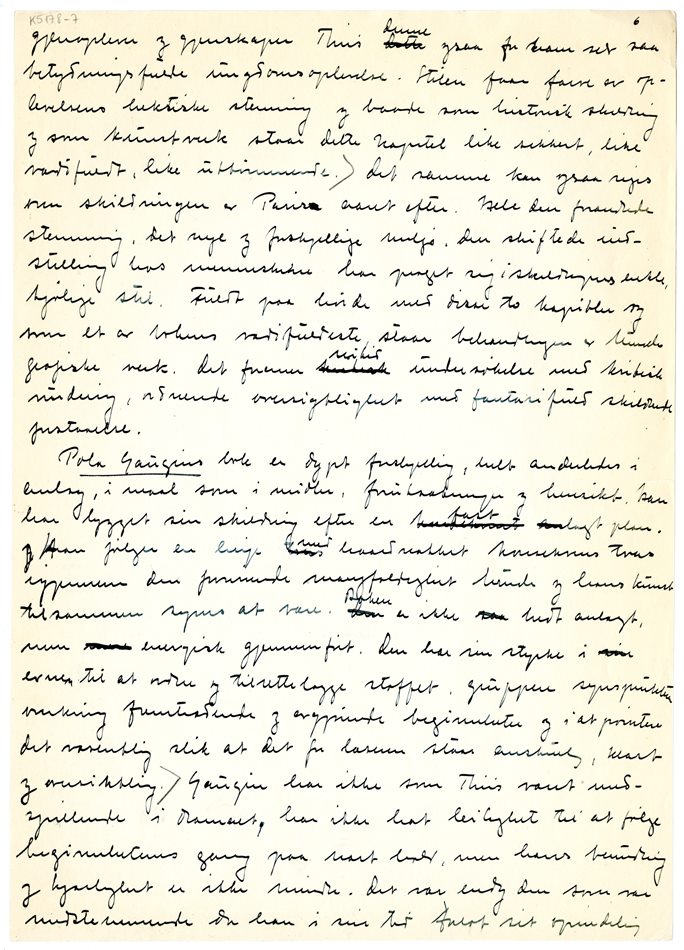 K5178-7
6
gjenopleve og gjenskaper Thiis denne ogsaa for ham selv saa
betydningsfulde ungdomsoplevelse. Stilen faar farve av op-
levelsens hektiske stemning og baade som historisk skildring
og som kunstverk staar dette kapitel like sikkert, like
værdifuldt, like uttømmende. Det samme kan ogsaa sies
om skildringen av Paris aaret efter. Hele den forandrede
stemning, det nye og forskjellige miljø, den skiftede ind-
stilling hos menneskene har præget sig i skildringens enkle,
kjølige stil. Fuldt paa høide med disse to kapitler og
som et av bokens værdifuldeste, staar behandlingen av Munchs
grafiske verk. Det forener undersøkelse med kritisk
vurdering, ordnende oversigtlighet med fantasifuld skildrende
forstaaelse.
Pola Gauguins bok er dypt forskjellig, helt anderledes i
anlæg, i maal som i midler, forutsætninger og hensikt. Han
har bygget sin skildring efter en fast anlagt plan.
Han følger en linje med haardnakket konsekvens tvers
igjennem den forvirrende mangfoldighet Munchs og hans kunst
tilsammen synes at være. Boken er ikke bredt anlagt,
men energisk gjennemført. Den har sin styrke i
evnen til at ordne og tilrettelægge stoffet, gruppere synspunkter
virkning fremtrædende og avgjørende begivenheter og i at pointere
det væsentlig slik at det for læseren staar anskuelig, klart
og oversiktlig. Gauguin har ikke som Thiis været med-
spillende i dramaet, har ikke hat leilighet til at følge
begivenhetenes gang paa nært hold, men hans beundring
og kjærlighet er ikke mindre. Det var endog den som var
medbestemmende da han i sin tid sit oprindelig